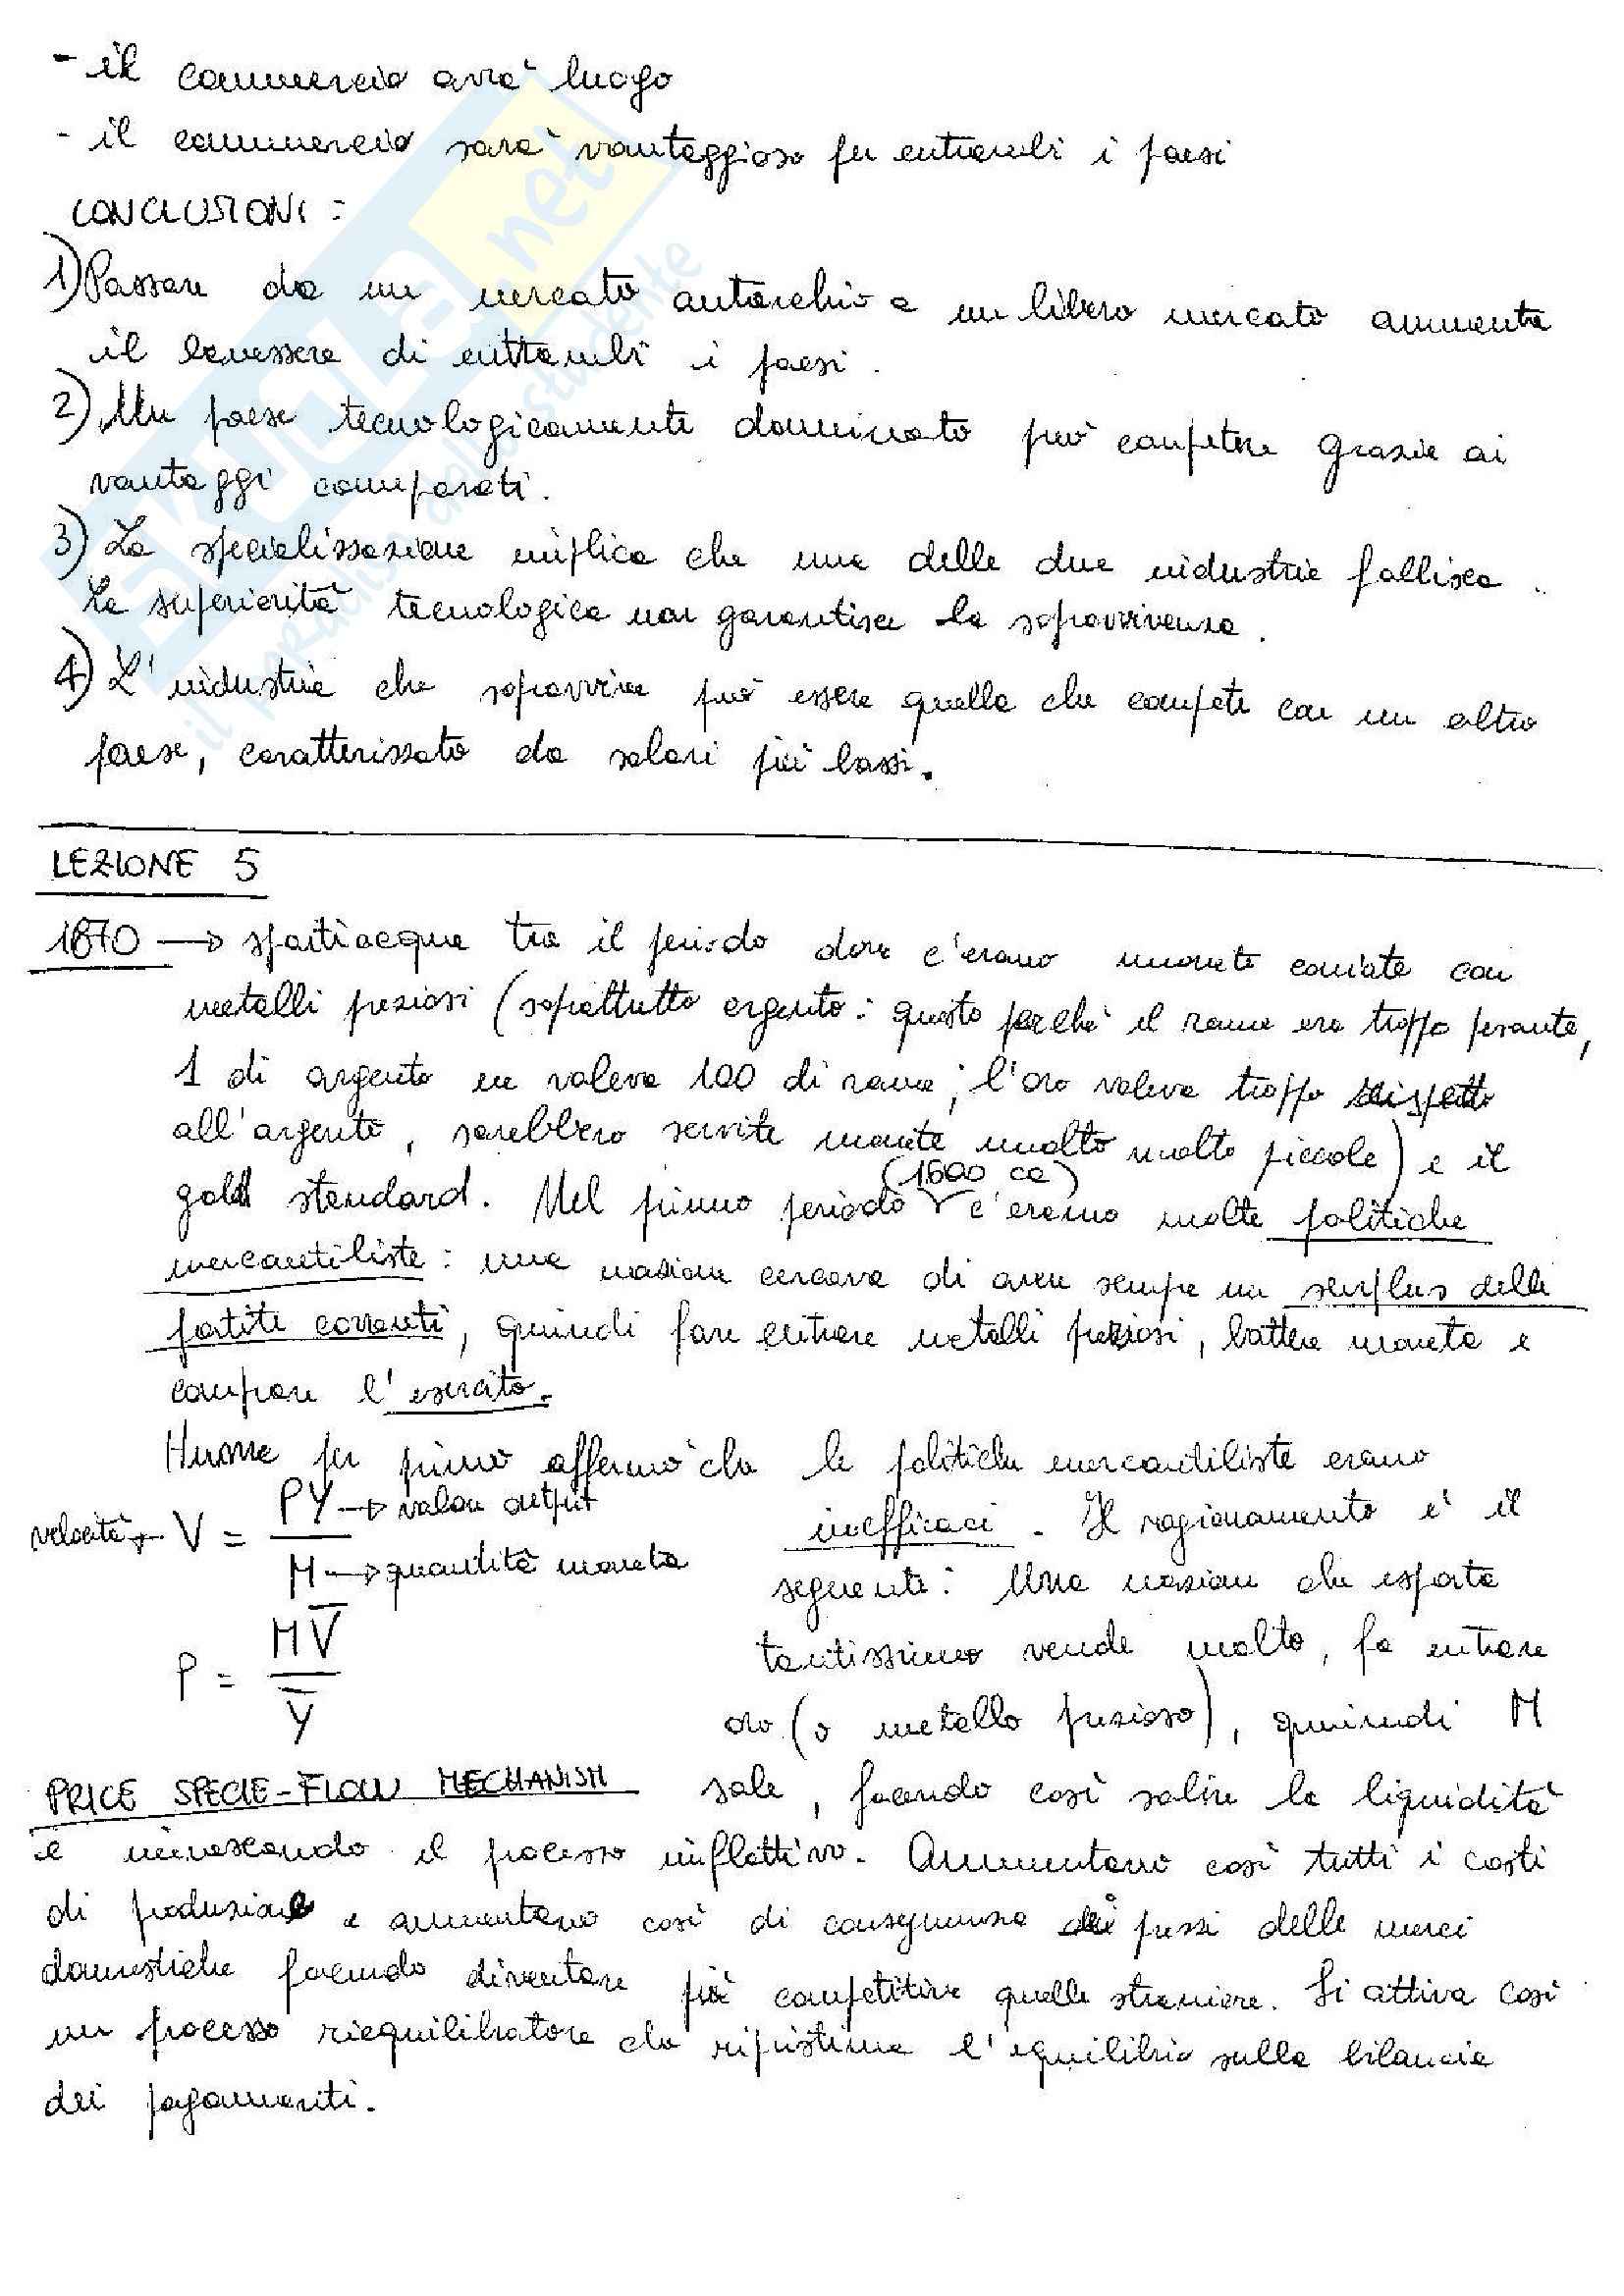 - il commercio avrà luogo
- il commercio sarà vantaggioso per entrambi i paesi
CONCLUSIONI:
1) Passare da un mercato autarchico a un libero mercato aumenta
il benessere di entrambi i paesi.
2) Un paese tecnologicamente dominato può competere grazie ai
vantaggi comparati.
3) La specializzazione implica che una delle due industrie fallisca.
La superiorità tecnologica non garantisce la sopravvivenza.
4) L'industria che sopravvive può essere quella che compete con un altro
paese, caratterizzato da salari più bassi.
LEZIONE 5
1870 → spartiacque tra il periodo dove c'erano monete coniate con
metalli preziosi (soprattutto argento: questo perché il rame era troppo pesante,
1 di argento ne valeva 100 di rame; l'oro valeva troppo rispetto
all'argento, sarebbero servite monete molto molto piccole) e il
gold standard. Nel primo periodo (1600 ca) c'erano molte politiche
mercantiliste: una nazione cercava di avere sempre un surplus delle
partite correnti, quindi fare entrare metalli preziosi, battere moneta e
comprare l'esercito.
Hume per primo affermò che le politiche mercantiliste erano
velocità ← V = PY → valore output
M → quantità moneta
P = MV̅ / Y̅
inefficaci. Il ragionamento è il
seguente: Una nazione che esporta
tantissimo vende molto, fa entrare
oro (o metallo prezioso), quindi M
PRICE SPECIE-FLOW MECHANISM sale, facendo così salire la liquidità
e innescando il processo inflattivo. Aumentano così tutti i costi
di produzione e aumentano così di conseguenza i prezzi delle merci
domestiche facendo diventare più competitive quelle straniere. Si attiva così
un processo riequilibratore che ripristina l'equilibrio sulla bilancia
dei pagamenti.
SKUOLA.net
il paradiso dello studente